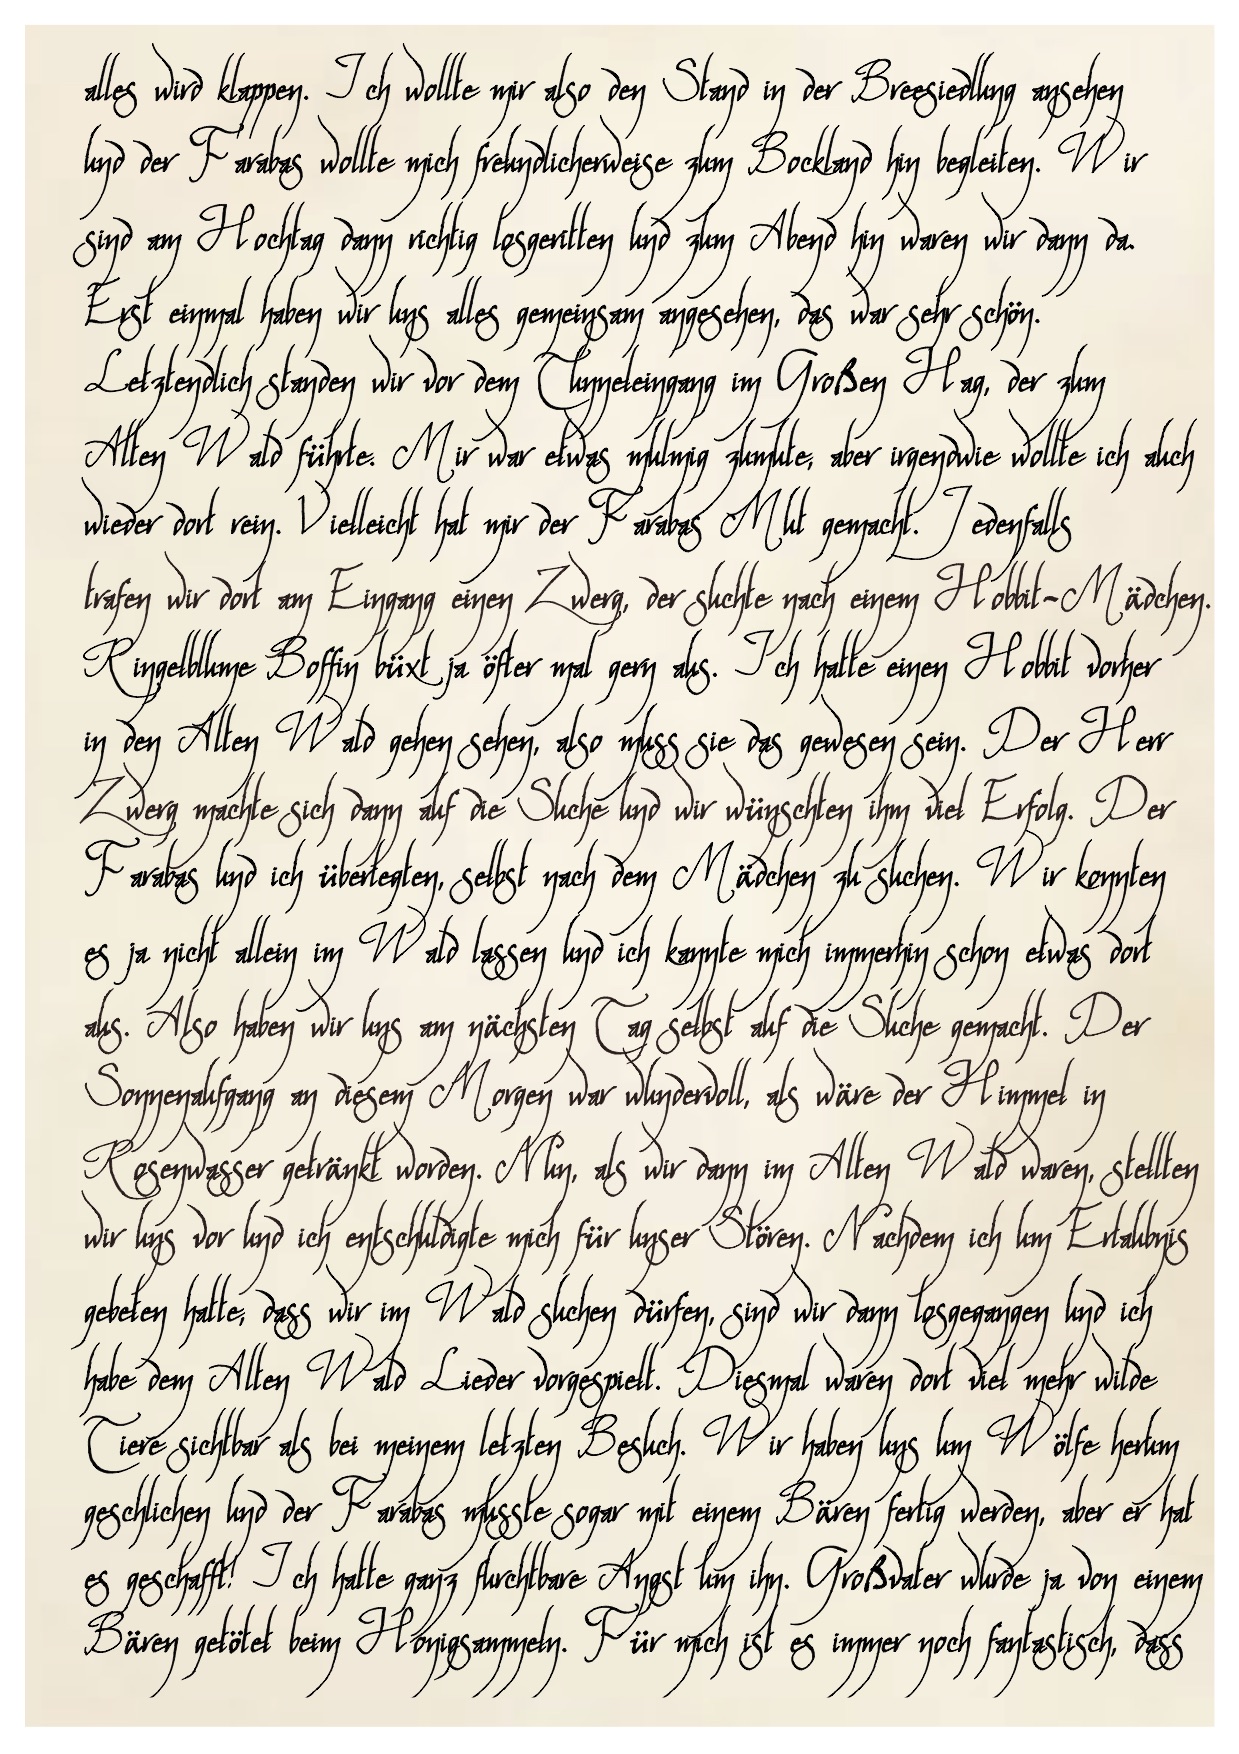 alles wird klappen. Ich wollte mir also den Stand in der Breesiedlung ansehen
und der Farabas wollte mich freundlicherweise zum Bockland hin begleiten. Wir
sind am Hochtag dann richtig losgeritten und zum Abend hin waren wir dann da.
Erst einmal haben wir uns alles gemeinsam angesehen, das war sehr schön.
Letztendlich standen wir vor dem Tunneleingang im Großen Hag, der zum
Alten Wald führte. Mir war etwas mulmig zumute, aber irgendwie wollte ich auch
wieder dort rein. Vielleicht hat mir der Farabas Mut gemacht. Jedenfalls
trafen wir dort am Eingang einen Zwerg, der suchte nach einem Hobbit-Mädchen.
Ringelblume Boffin büxt ja öfter mal gern aus. Ich hatte einen Hobbit vorher
in den Alten Wald gehen sehen, also muss sie das gewesen sein. Der Herr
Zwerg machte sich dann auf die Suche und wir wünschten ihm viel Erfolg. Der
Farabas und ich überlegten, selbst nach dem Mädchen zu suchen. Wir konnten
es ja nicht allein im Wald lassen und ich kannte mich immerhin schon etwas dort
aus. Also haben wir uns am nächsten Tag selbst auf die Suche gemacht. Der
Sonnenaufgang an diesem Morgen war wundervoll, als wäre der Himmel in
Rosenwasser getränkt worden. Nun, als wir dann im Alten Wald waren, stellten
wir uns vor und ich entschuldigte mich für unser Stören. Nachdem ich um Erlaubnis
gebeten hatte, dass wir im Wald suchen dürfen, sind wir dann losgegangen und ich
habe dem Alten Wald Lieder vorgespielt. Diesmal waren dort viel mehr wilde
Tiere sichtbar als bei meinem letzten Besuch. Wir haben uns um Wölfe herum
geschlichen und der Farabas musste sogar mit einem Bären fertig werden, aber er hat
es geschafft! Ich hatte ganz furchtbare Angst um ihn. Großvater wurde ja von einem
Bären getötet beim Honigsammeln. Für mich ist es immer noch fantastisch, dass